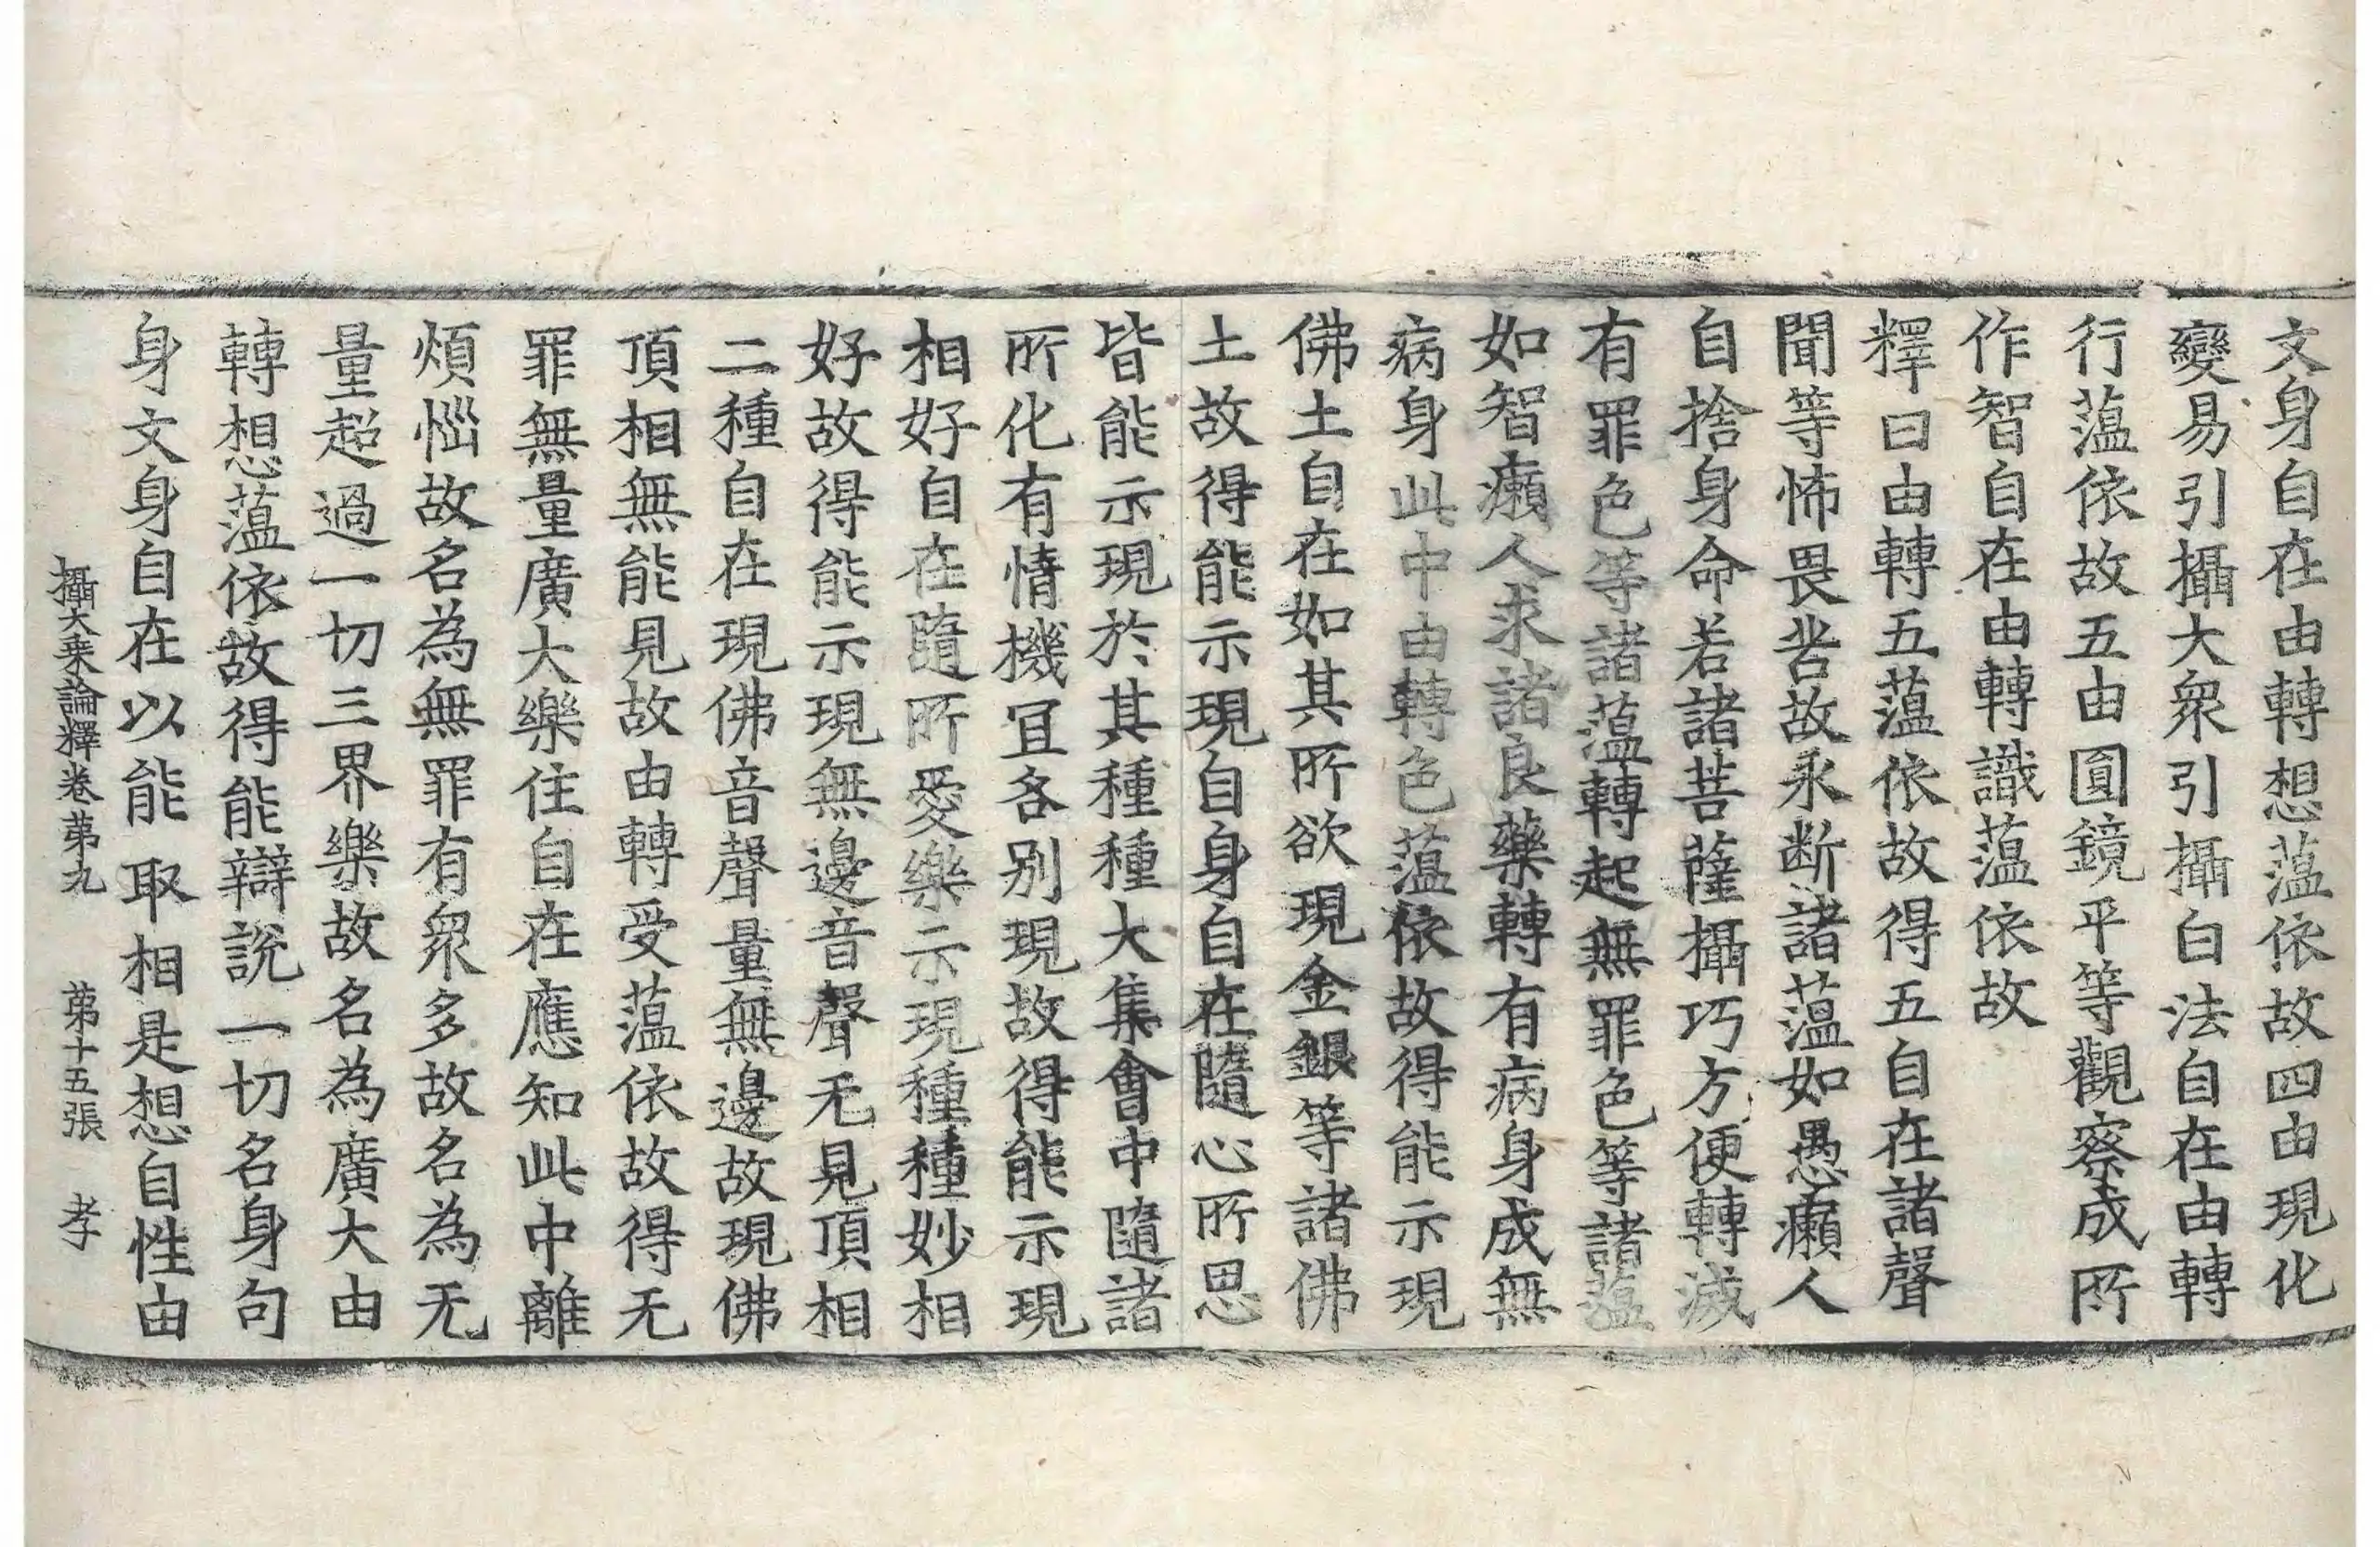 文身自在由轉想薀依故四由現化
變易引攝大衆引攝白法自在由轉
行薀依故五由圓鏡平等觀察成所
作智自在由轉識薀依故
釋曰由轉五薀依故得五自在諸聲
聞等怖畏苦故永断諸薀如愚癩人
自捨身命若諸菩薩攝巧方便轉滅
有罪色等諸薀轉起無罪色等諸薀
如智癩人求諸良藥轉有病身成無
病身此中由轉色薀依故得能示現
佛土自在如其所欲現金銀等諸佛
土故得能示現自身自在隨心所思
皆能示現於其種種大集會中隨諸
所化有情機冝各别現故得能示現
相好自在隨所愛樂示現種種妙相
好故得能示現無邊音聲无見頂相
二種自在現佛音聲量無邊故現佛
頂相無能見故由轉受薀依故得无
罪無量廣大樂住自在應知此中離
煩惱故名為無罪有衆多故名為无
量超過一切三界樂故名為廣大由
轉想薀依故得能辯説一切名身句
身文身自在以能取相是想自性由
攝大乗論釋卷苐九　苐十五張　孝